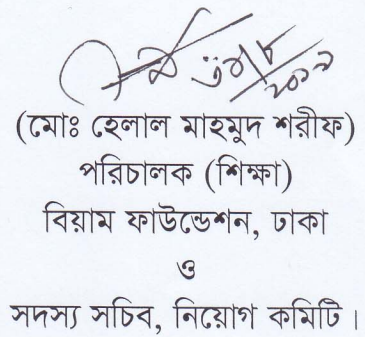 (মোঃ হেলাল মাহমুদ শরীফ)
পরিচালক (শিক্ষা)
বিয়াম ফাউন্ডেশন, ঢাকা
ও
সদস্য সচিব, নিয়োগ কমিটি।